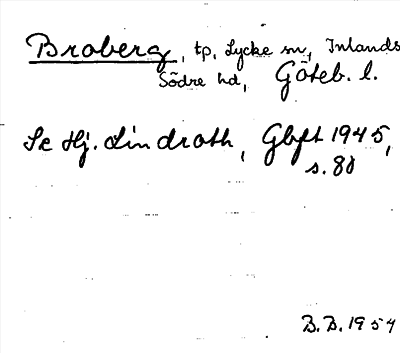 Broberg, tp, Lycke sn, Inlands
Södre hd, Göteb. l.
Se Hj. Lindroth, Gbft 1945,
s. 80
B.B. 1954